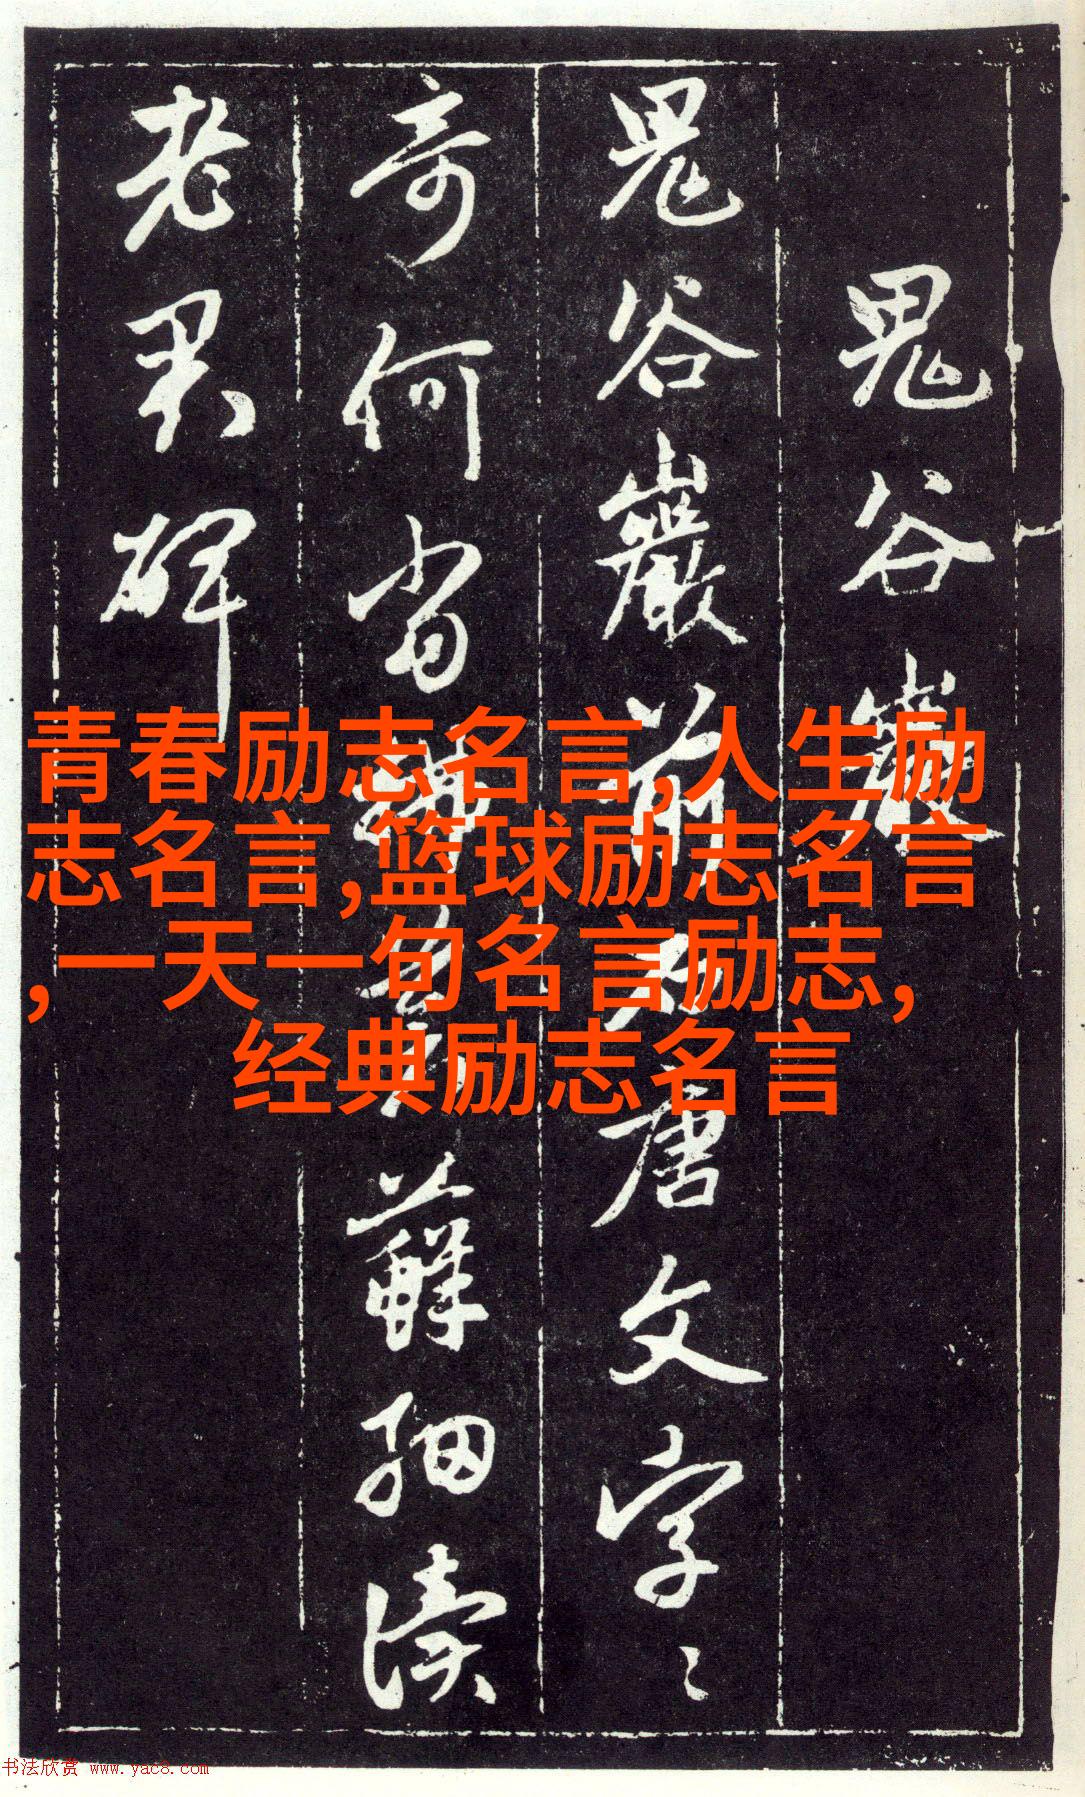 鬼谷巖
鬼谷巖前唐文字〻
奇何當蘚細讀
老碑
青春励志名言,人生励
志名言,篮球励志名言
,一天一句名言励志,
经典励志名言
书法欣赏 www.yac8.com